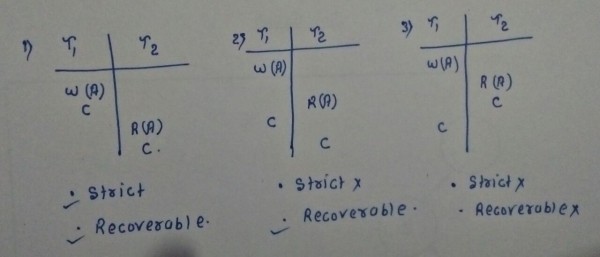 1) T1 T2
W(A)
C
R(A)
C.
• Strict
• Recoverable.
2) T1 T2
W(A)
R(A)
C
C
• Strict x
• Recoverable.
3) T1 T2
W(A)
R(A)
C
C
• Strict x
• Recoverable x